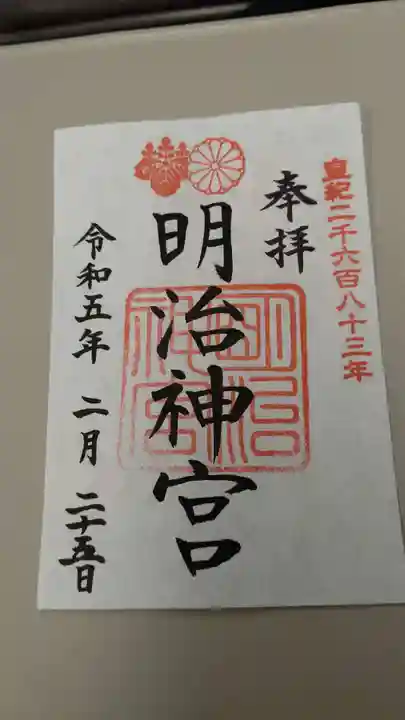 皇紀二千六百八十三年
奉拝
明治神宮
明治神宮
令和五年 二月 二十五日